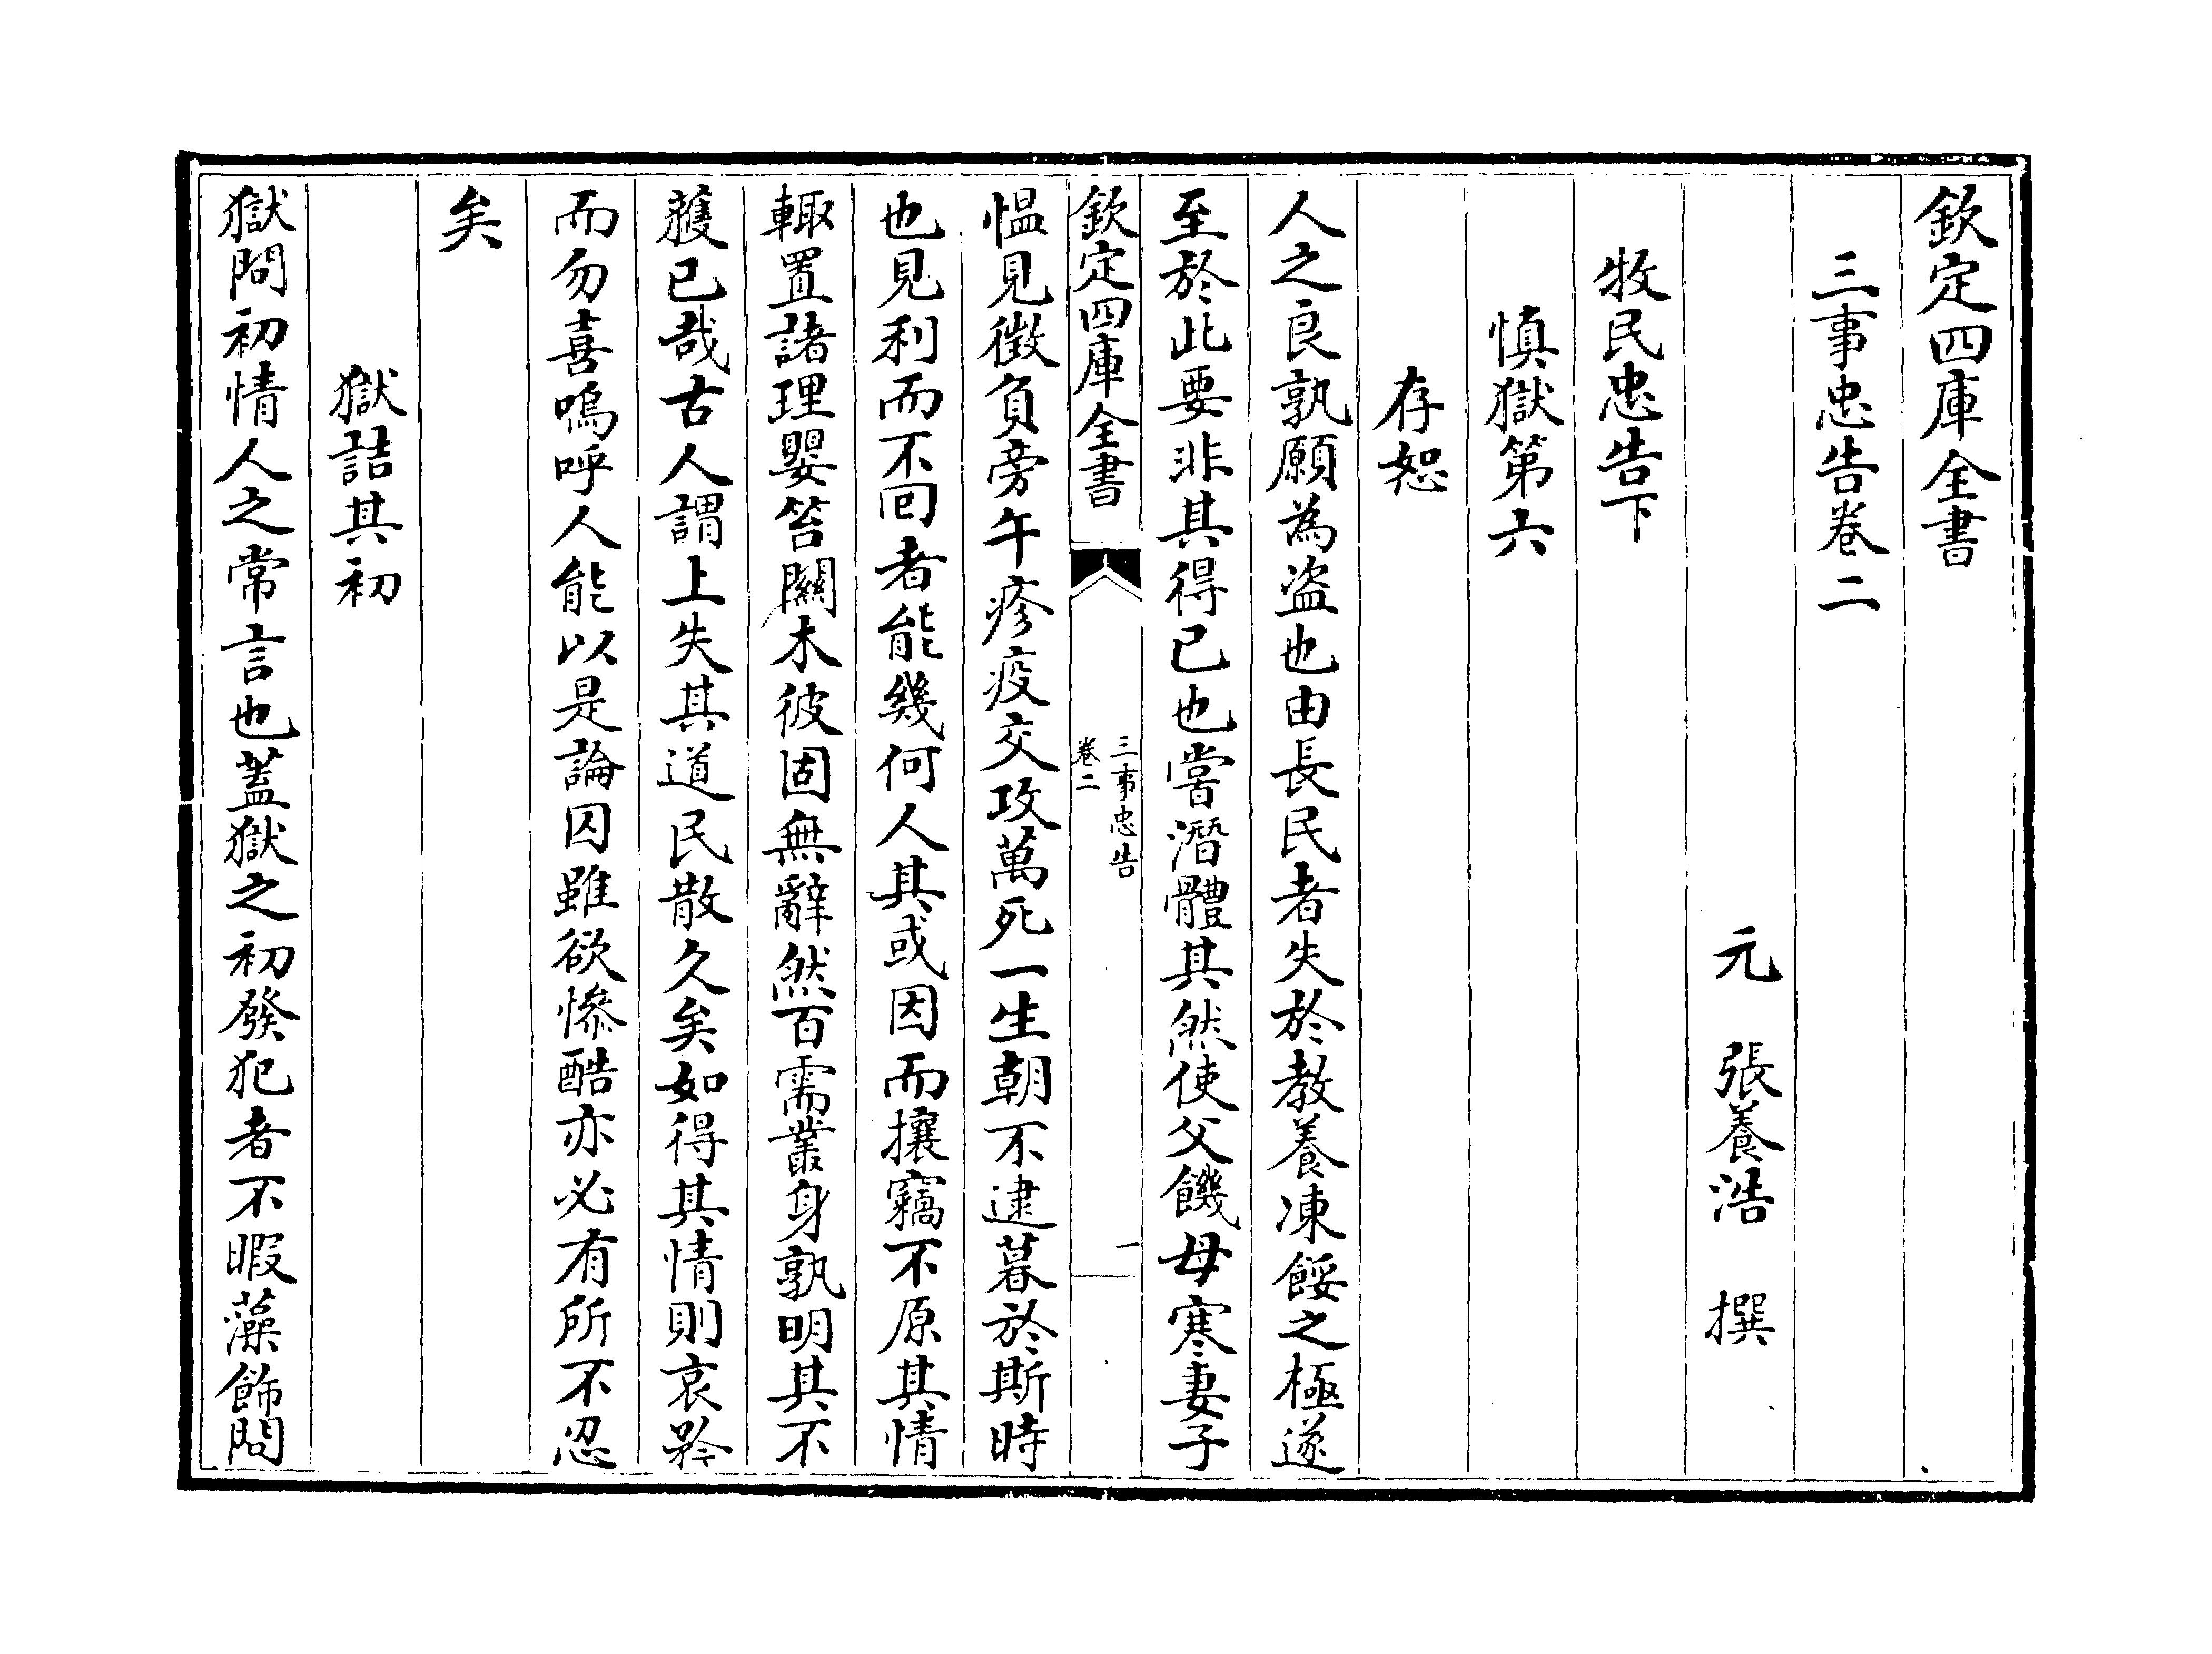 欽定四庫全書
三事忠告卷二
元　張養浩　撰
牧民忠告下
慎獄第六
存恕
人之良孰願為盜也由長民者失於教養凍餒之極遂
至於此要非其得已也嘗潛體其然使父饑母寒妻子
欽定四庫全書
三事忠告
卷二
一
愠見徵負旁午疹疫交攻萬死一生朝不逮暮於斯時
也見利而不回者能幾何人其或因而攘竊不原其情
輙置諸理嬰笞關木彼固無辭然百需叢身孰明其不
獲已哉古人謂上失其道民散久矣如得其情則哀矜
而勿喜嗚呼人能以是論囚雖欲慘酷亦必有所不忍
矣
獄詰其初
獄問初情人之常言也蓋獄之初發犯者不暇藻飾問